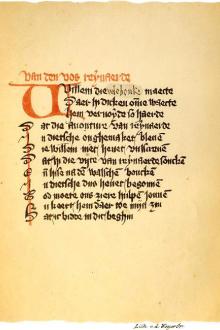 Van den vos reynaerde
Willem die madocke maecte
Daer hi dicken omme waecte
Hem vernoyde so haerde
Dat die avonture van reynaerde
In dietsche onghemaket bleven
Die willem niet hevet vulscreven
Dat hi die vite van reynaerde soucken
Ende hise na den walschen boucken
In dietsche dus hevet begonnen
God moete ons ziere hulpen jonnen
Nu keert hem daer toe mijn zin
Dat ic bidde in dit beghin